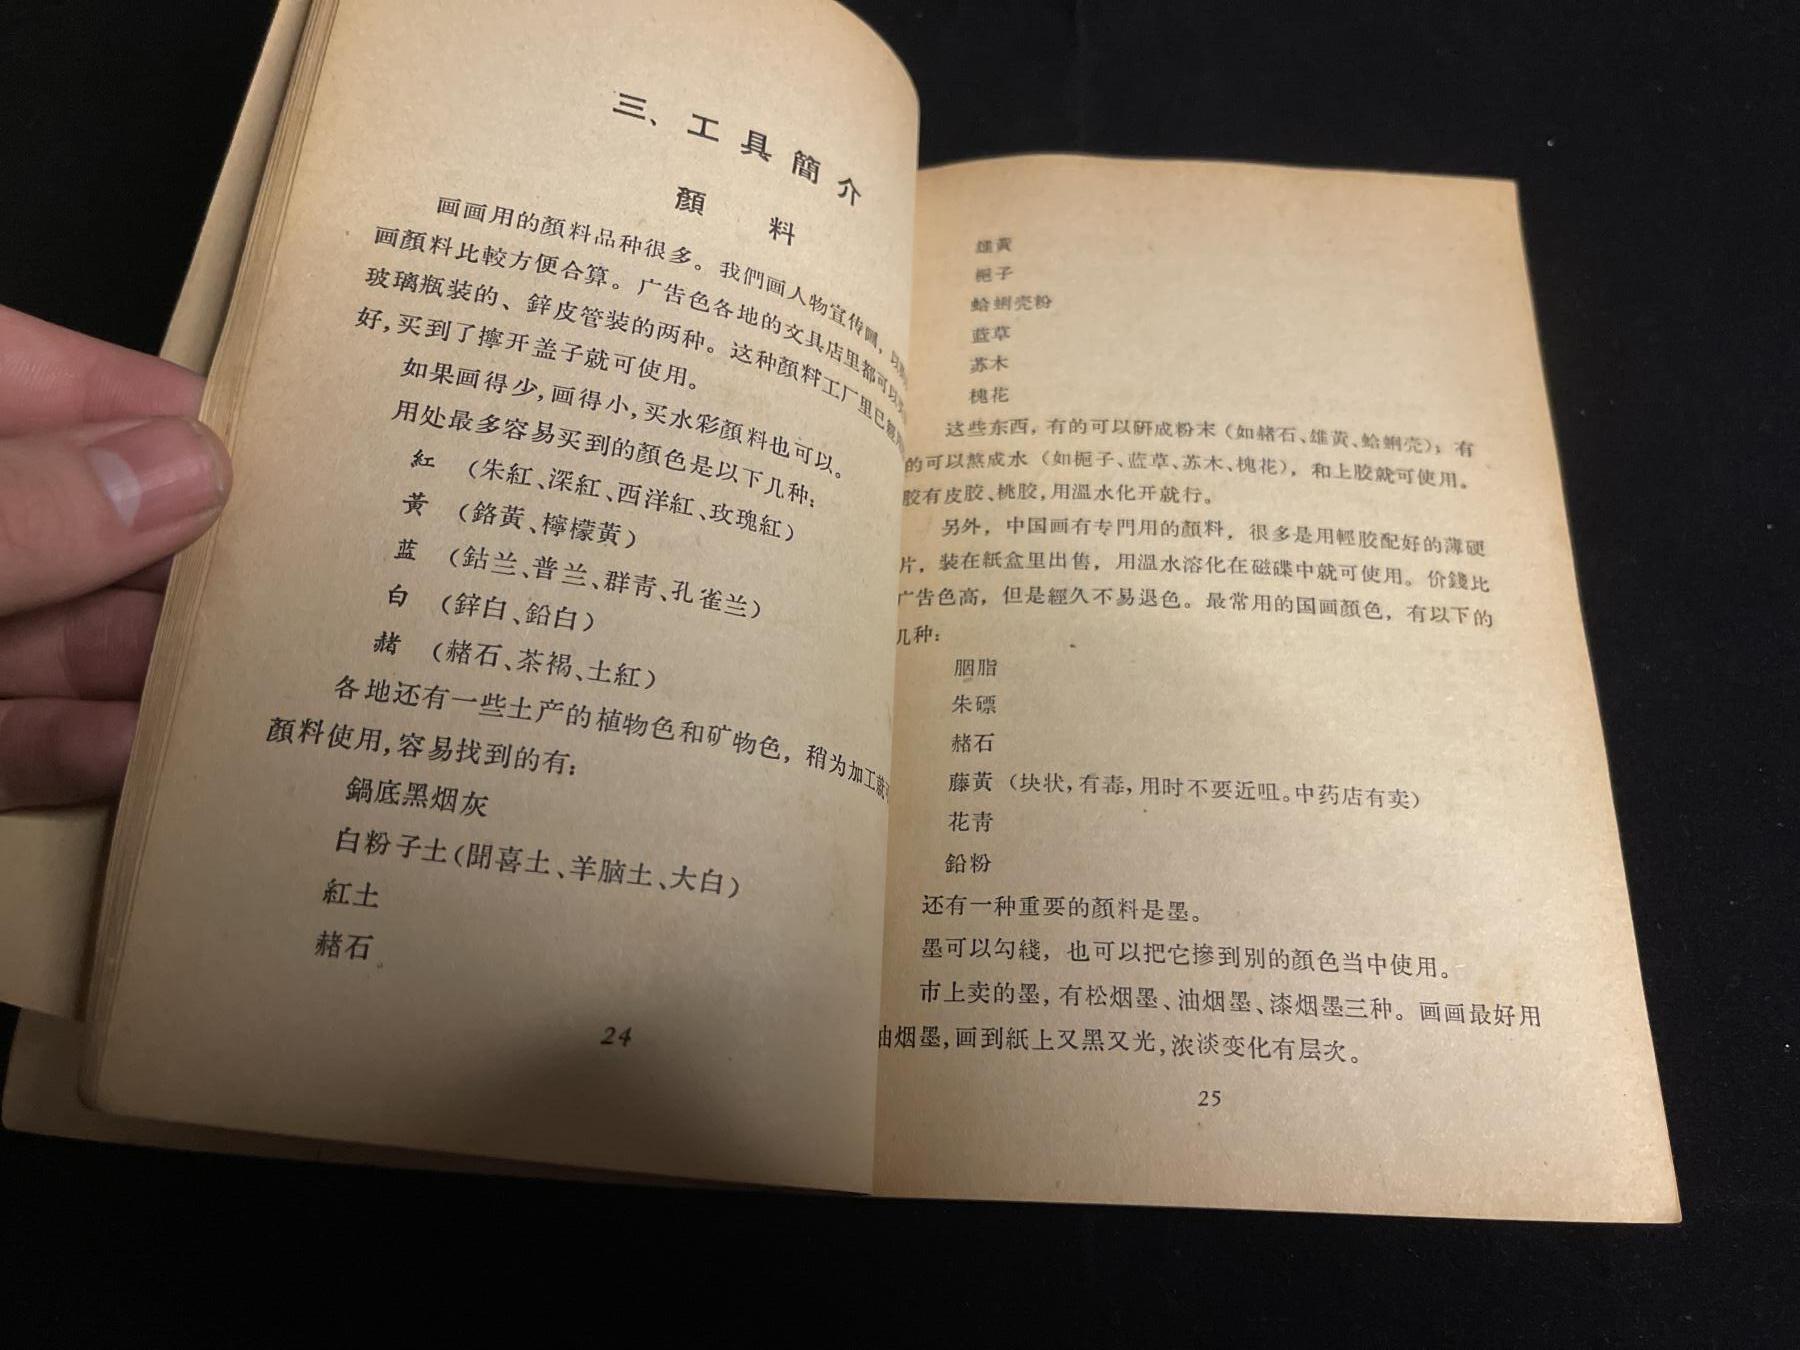 三、工具簡介
顏料
画画用的顏料品种很多。我們画人物宣传画，以
画顏料比較方便合算。广告色各地的文具店里都可以
玻璃瓶装的、鋅皮管装的两种。这种顏料工厂里已
好，买到了擰开盖子就可使用。
如果画得少，画得小，买水彩顏料也可以。
用处最多容易买到的顏色是以下几种：
紅 （朱紅、深紅、西洋紅、玫瑰紅）
黃 （鉻黃、檸檬黃）
蓝 （鈷兰、普兰、群靑、孔雀兰）
白 （鋅白、鉛白）
赭 （赭石、茶褐、土紅）
各地还有一些土产的植物色和矿物色，稍为加工就
顏料使用，容易找到的有：
鍋底黑烟灰
白粉子土（聞喜土、羊脑土、大白）
紅土
赭石
24
雄黃
梔子
蛤蜊壳粉
蓝草
苏木
槐花
这些东西，有的可以研成粉末（如赭石、雄黃、蛤蜊壳）；有
的可以熬成水（如梔子、蓝草、苏木、槐花），和上胶就可使用。
胶有皮胶、桃胶，用溫水化开就行。
另外，中国画有专門用的顏料，很多是用輕胶配好的薄硬
片，装在紙盒里出售，用溫水溶化在磁碟中就可使用。价錢比
广告色高，但是經久不易退色。最常用的国画顏色，有以下的
几种：
胭脂
朱磦
赭石
藤黃（块状，有毒，用时不要近咀。中药店有卖）
花靑
鉛粉
还有一种重要的顏料是墨。
墨可以勾綫，也可以把它摻到別的顏色当中使用。
市上卖的墨，有松烟墨、油烟墨、漆烟墨三种。画画最好用
油烟墨，画到紙上又黑又光，浓淡变化有层次。
25